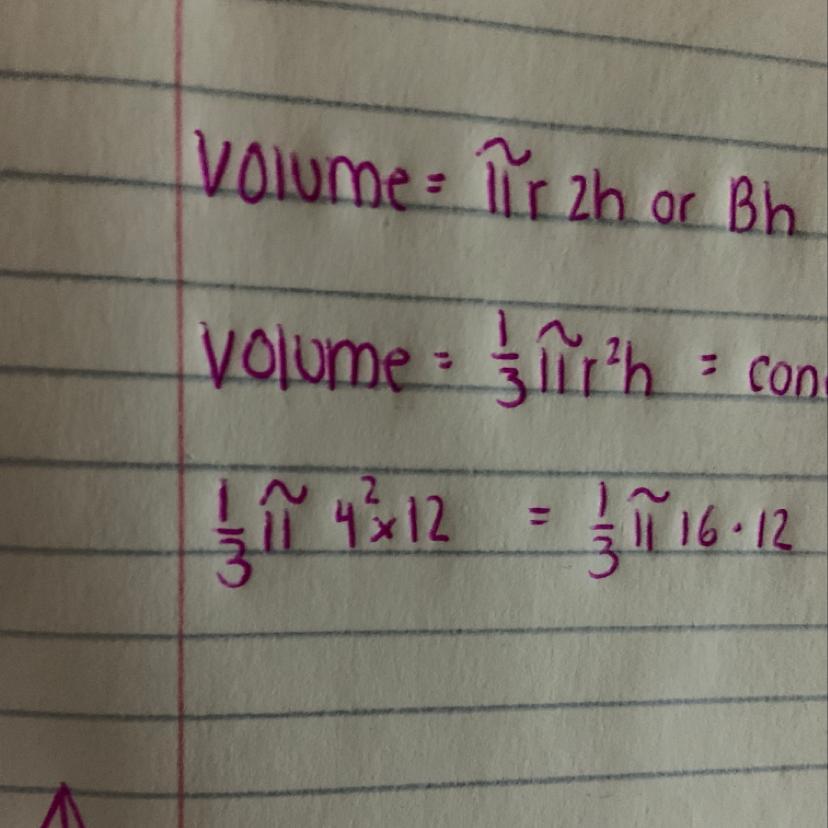 Volume = πr 2h or Bh
Volume = 1/3 πr²h = con
1/3 π 4² x 12 = 1/3 π 16 · 12